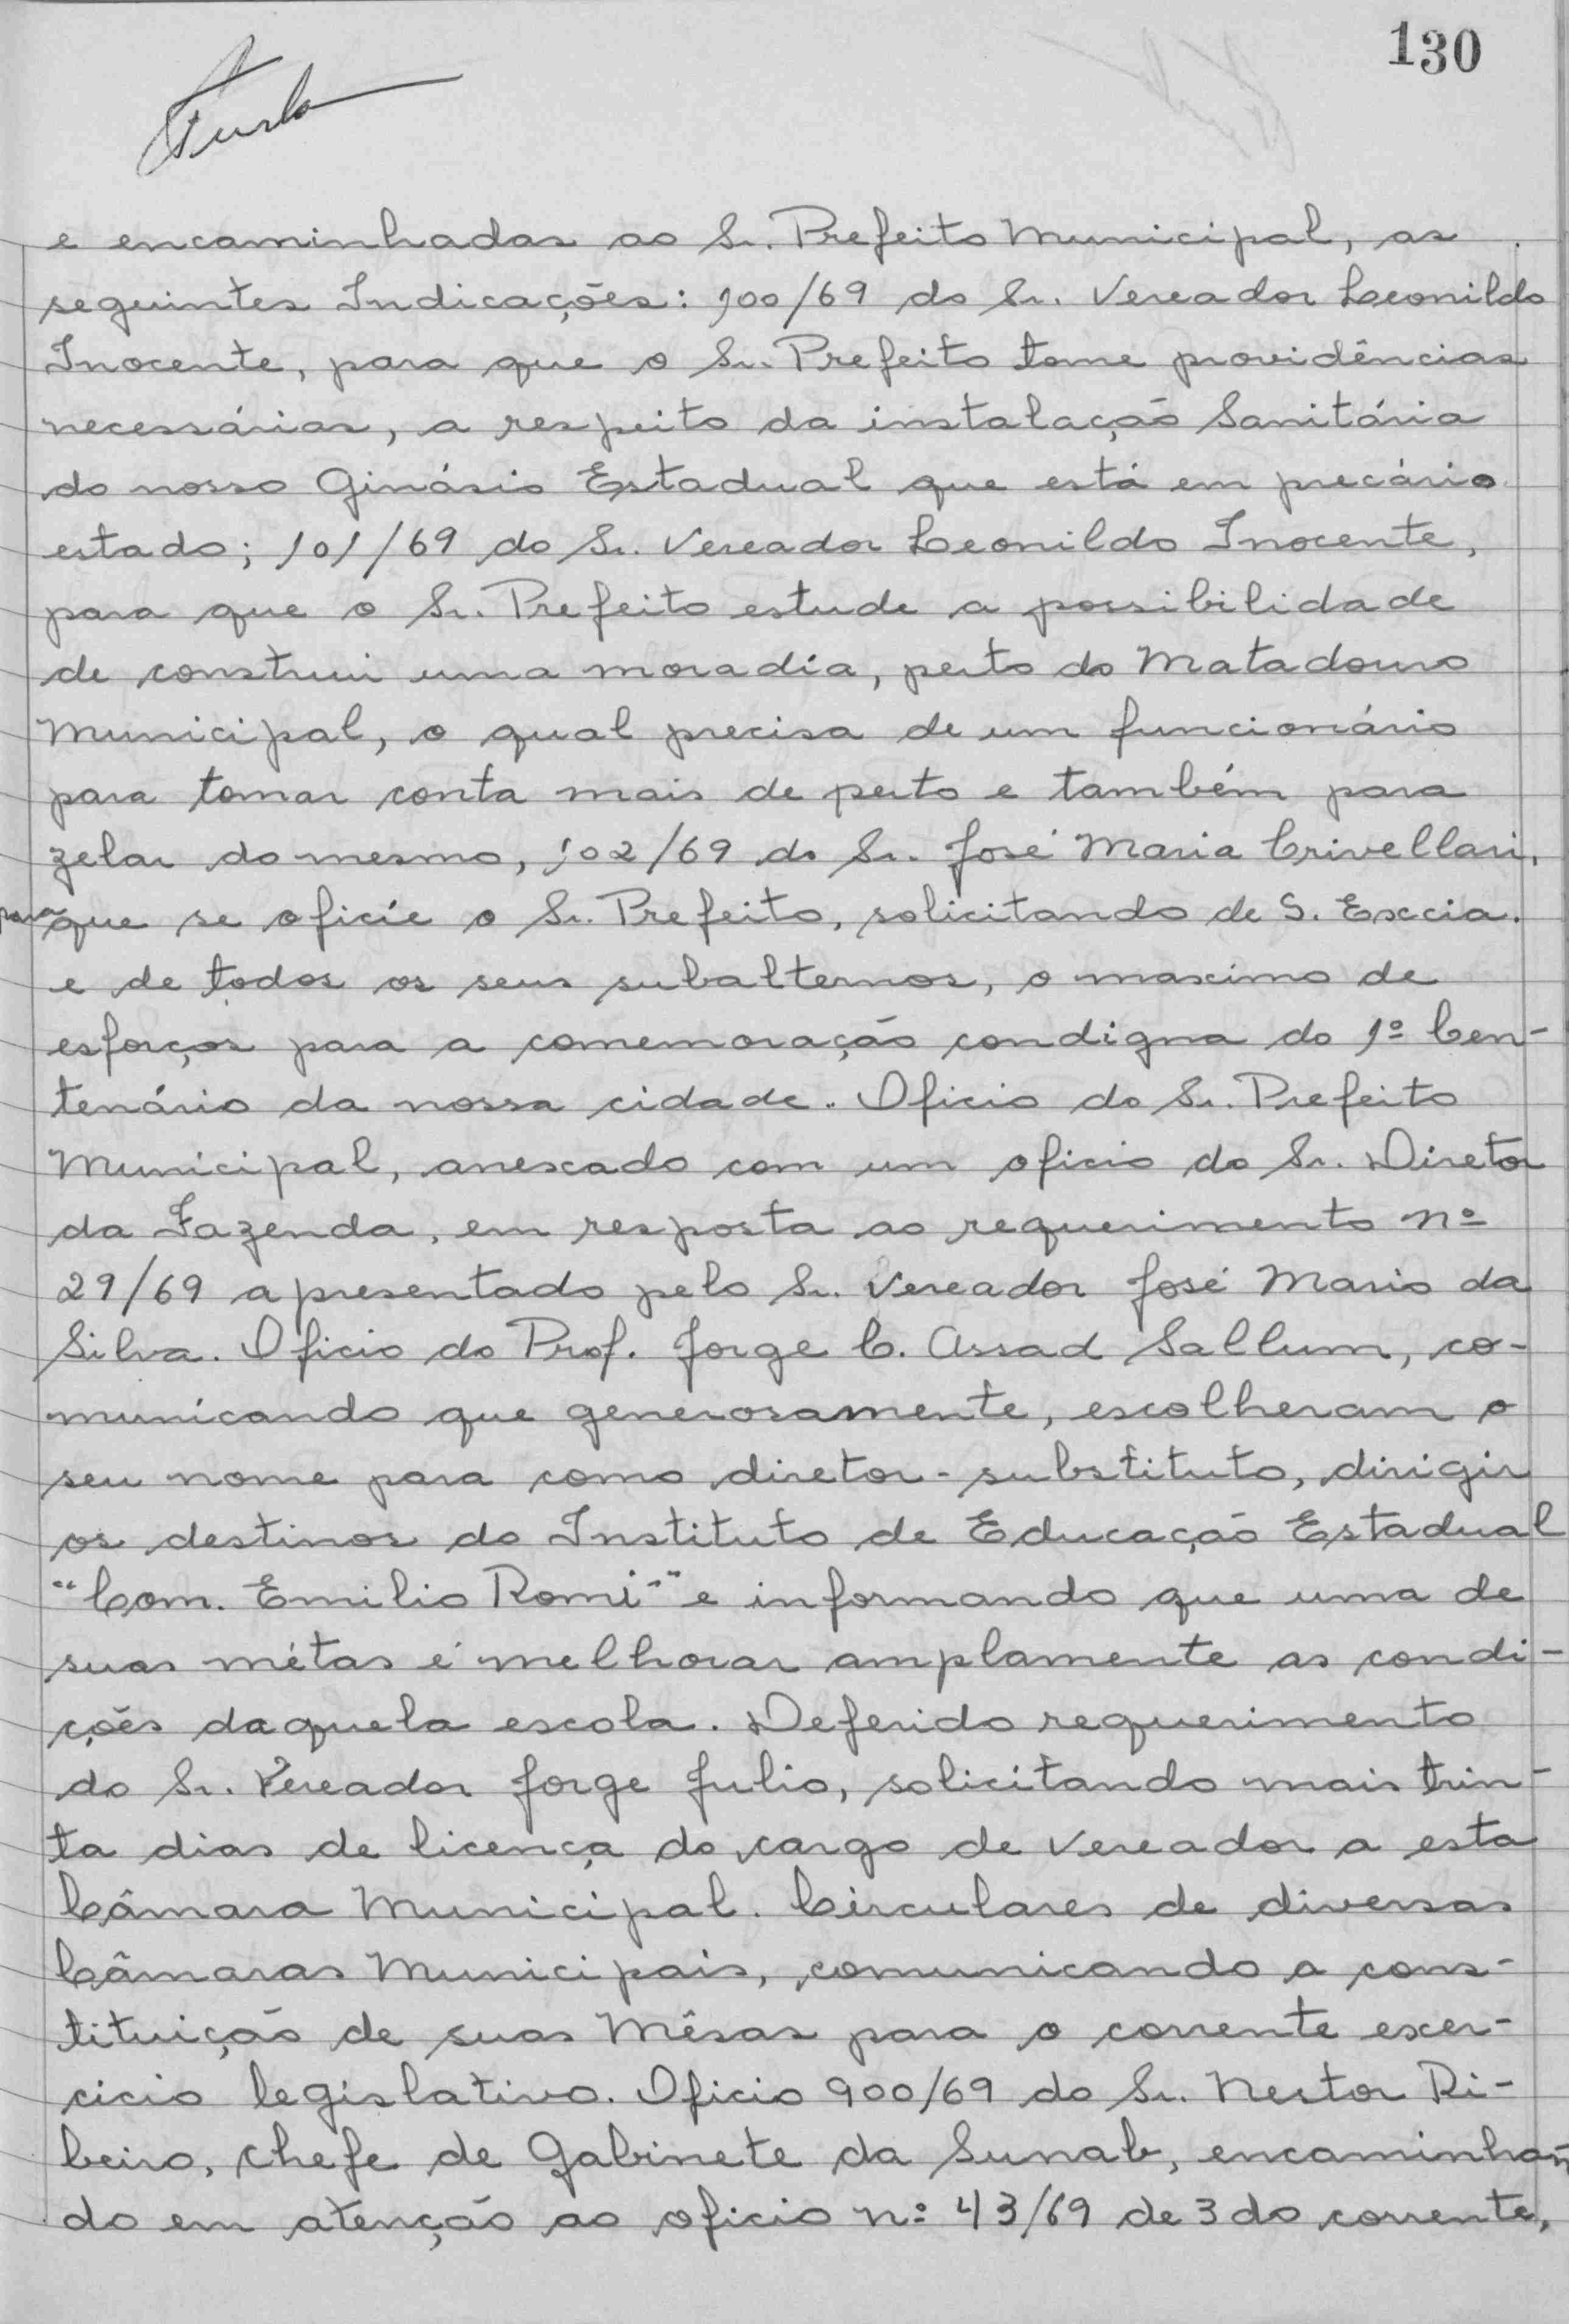 130
e encaminhadas ao Sr. Prefeito Municipal, as
seguintes Indicações: 100/69 do Sr. Vereador Leonildo
Inocente, para que o Sr. Prefeito tome providências
necessárias, a respeito da instalação Sanitária
do nosso Ginásio Estadual que está em precário
estado; 101/69 do Sr. Vereador Leonildo Inocente,
para que o Sr. Prefeito estude a possibilidade
de construir uma moradia, perto do Matadouro
Municipal, o qual precisa de um funcionário
para tomar conta mais de perto e também para
zelar do mesmo, 102/69 do Sr. José Maria Crivellari,
para que se oficie o Sr. Prefeito, solicitando de S. Excia.
e de todos os seus subalternos, o maximo de
esforços para a comemoração condigna do 1º Cen-
tenário da nossa cidade. Oficio do Sr. Prefeito
Municipal, anexado com um oficio do Sr. Diretor
da Fazenda, em resposta ao requerimento nº
29/69 apresentado pelo Sr. Vereador José Mario da
Silva. Oficio do Prof. Jorge C. Assad Sallum, co-
municando que generosamente, escolheram o
seu nome para como diretor-substituto, dirigir
os destinos do Instituto de Educação Estadual
"Com. Emilio Romi" e informando que uma de
suas métas é melhorar amplamente as condi-
ções daquela escola. Deferido requerimento
do Sr. Vereador Jorge Julio, solicitando mais trin-
ta dias de licença do cargo de Vereador a esta
Câmara Municipal. Circulares de diversas
Câmaras Municipais, comunicando a cons-
tituição de suas Mêsas para o corrente exer-
cicio legislativo. Oficio 900/69 do Sr. Nestor Ri-
beiro, Chefe de Gabinete da Sunab, encaminhan-
do em atenção ao oficio nº 43/69 de 3 do corrente,